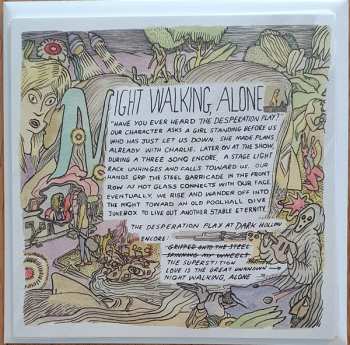 NIGHT WALKING ALONE
"HAVE YOU EVER HEARD THE DESPERATION PLAY?"
OUR CHARACTER ASKS A GIRL STANDING BEFORE US
WHO HAS JUST LET US DOWN. SHE MADE PLANS
ALREADY WITH CHARLIE. LATER ON AT THE SHOW,
DURING A THREE SONG ENCORE, A STAGE LIGHT
RACK UNHINGES AND FALLS TOWARD US. OUR
HANDS GRIP THE STEEL BARRICADE IN THE FRONT
ROW AS HOT GLASS CONNECTS WITH OUR FACE.
EVENTUALLY, WE RISE AND WANDER OFF INTO
THE NIGHT TOWARD AN OLD POOLHALL DIVE
JUKEBOX TO LIVE OUT ANOTHER STABLE ETERNITY.
THE DESPERATION PLAY AT DARK HOLLOW
ENCORE:
GRIPPED ONTO THE STEEL
SPINNING MY WHEELS
THE SUPERSTITION
LOVE IS THE GREAT UNKNOWN
NIGHT WALKING, ALONE